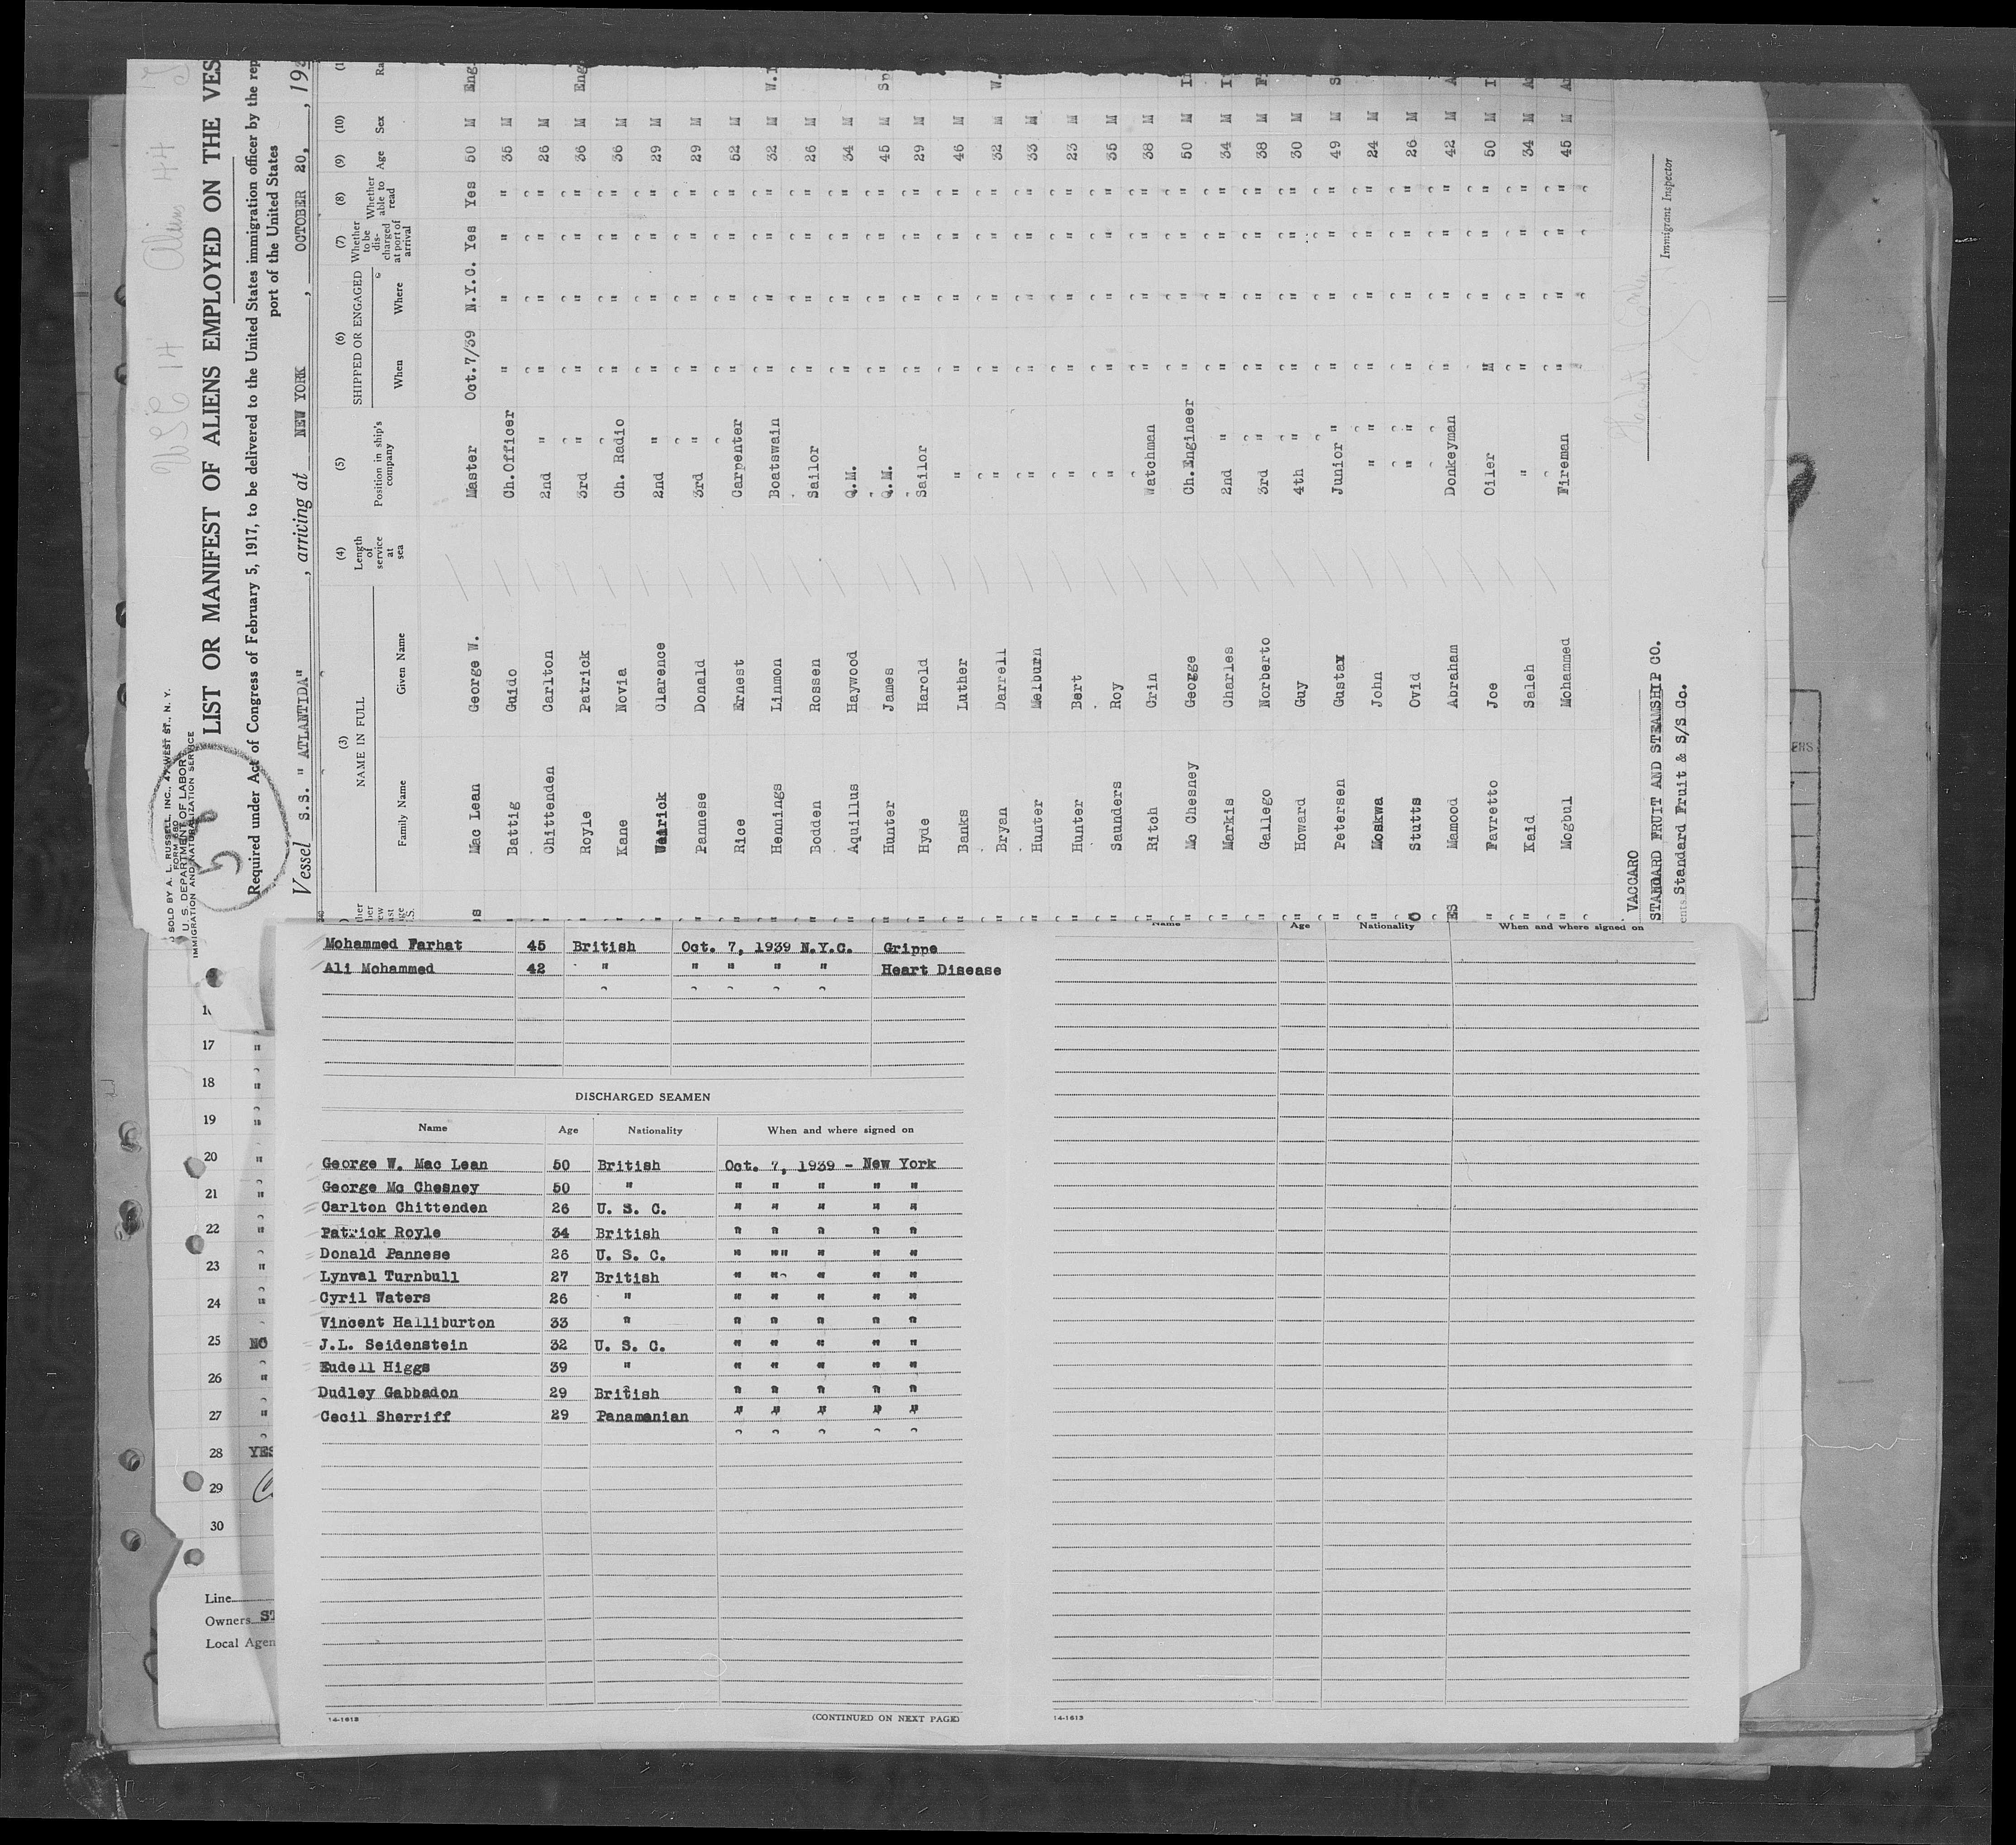 SOLD BY A. L. RUSSELL, INC., 47 WEST ST., N. Y.
FORM 680
U. S. DEPARTMENT OF LABOR
IMMIGRATION AND NATURALIZATION SERVICE
58
Aliens 44
USC 14
LIST OR MANIFEST OF ALIENS EMPLOYED ON THE VES
Required under Act of Congress of February 5, 1917, to be delivered to the United States immigration officer by the rep
port of the United States
Vessel S.S. " ATLANTIDA" , arriving at NEW YORK , OCTOBER 20, , 193
(3) (4) (5) (6) (7) (8) (9) (10)
NAME IN FULL Length of service at sea Position in ship's company SHIPPED OR ENGAGED Whether to be discharged at port of arrival Whether able to read Age Sex Ra
Family Name Given Name When Where
Mac Lean George W. Master Oct.7/39 N.Y.C. Yes Yes 50 M Eng
Battig Guido Ch.Officer " " " " 35 M
Chittenden Carlton 2nd " " " " " 26 M
Royle Patrick 3rd " " " " " 36 M Eng
Kane Novia Ch. Radio " " " " 36 M
Weirick Clarence 2nd " " " " " 29 M
Pannese Donald 3rd " " " " " 29 M
Rice Ernest Carpenter " " " " 52 M
Hennings Linmon Boatswain " " " " 32 M W.I
Bodden Rossen Sailor " " " " 26 M
Aquillus Haywood Q.M. " " " " 34 M
Hunter James Q.M. " " " " 45 M Sp
Hyde Harold Sailor " " " " 29 M
Banks Luther " " " " " 46 M
Bryan Darrell " " " " " 32 M W.
Hunter Melburn " " " " " 33 M
Hunter Bert " " " " " 23 M
Saunders Roy " " " " " 35 M
Ritch Orin Watchman " " " " 38 M
Mc Chesney George Ch.Engineer " " " " 50 M
Markis Charles 2nd " " " " " 34 M
Gallego Norberto 3rd " " " " " 38 M
Howard Guy 4th " " " " " 30 M
Petersen Gustax Junior " " " " " 49 M S
Moskwa John " " " " " " 24 M
Stutts Ovid " " " " " " 26 M
Mamood Abraham Donkeyman " " " " 42 M A
Favretto Joe Oiler " " " " 50 M I
Kaid Saleh " " " " " 34 M A
Mogbul Mohammed Fireman " " " " 45 M
VACCARO
STANDARD FRUIT AND STEAMSHIP CO.
ents Standard Fruit & S/S Co.
Immigrant Inspector
Mohammed Farhat 45 British Oct. 7, 1939 N.Y.C. Grippe
Ali Mohammed 42 " " " " " Heart Disease
DISCHARGED SEAMEN
Name Age Nationality When and where signed on
George W. Mac Lean 50 British Oct. 7, 1939 - New York
George Mc Chesney 50 " " " " " "
Carlton Chittenden 26 U. S. C. " " " " "
Patrick Royle 34 British " " " " "
Donald Pannese 26 U. S. C. " "" " " "
Lynval Turnbull 27 British " " " " "
Cyril Waters 26 " " " " " "
Vincent Halliburton 33 " " " " " "
J.L. Seidenstein 32 U. S. C. " " " " "
Eudell Higgs 39 " " " " " "
Dudley Gabbadon 29 British " " " " "
Cecil Sherriff 29 Panamanian " " " " "
14-1613 (CONTINUED ON NEXT PAGE)
Name Age Nationality When and where signed on
14-1613
17 "
18 "
19 "
20 "
21 "
22 "
23 "
24 "
25 NO
26 "
27 "
28 YES
29
30
Line
Owners ST
Local Agen